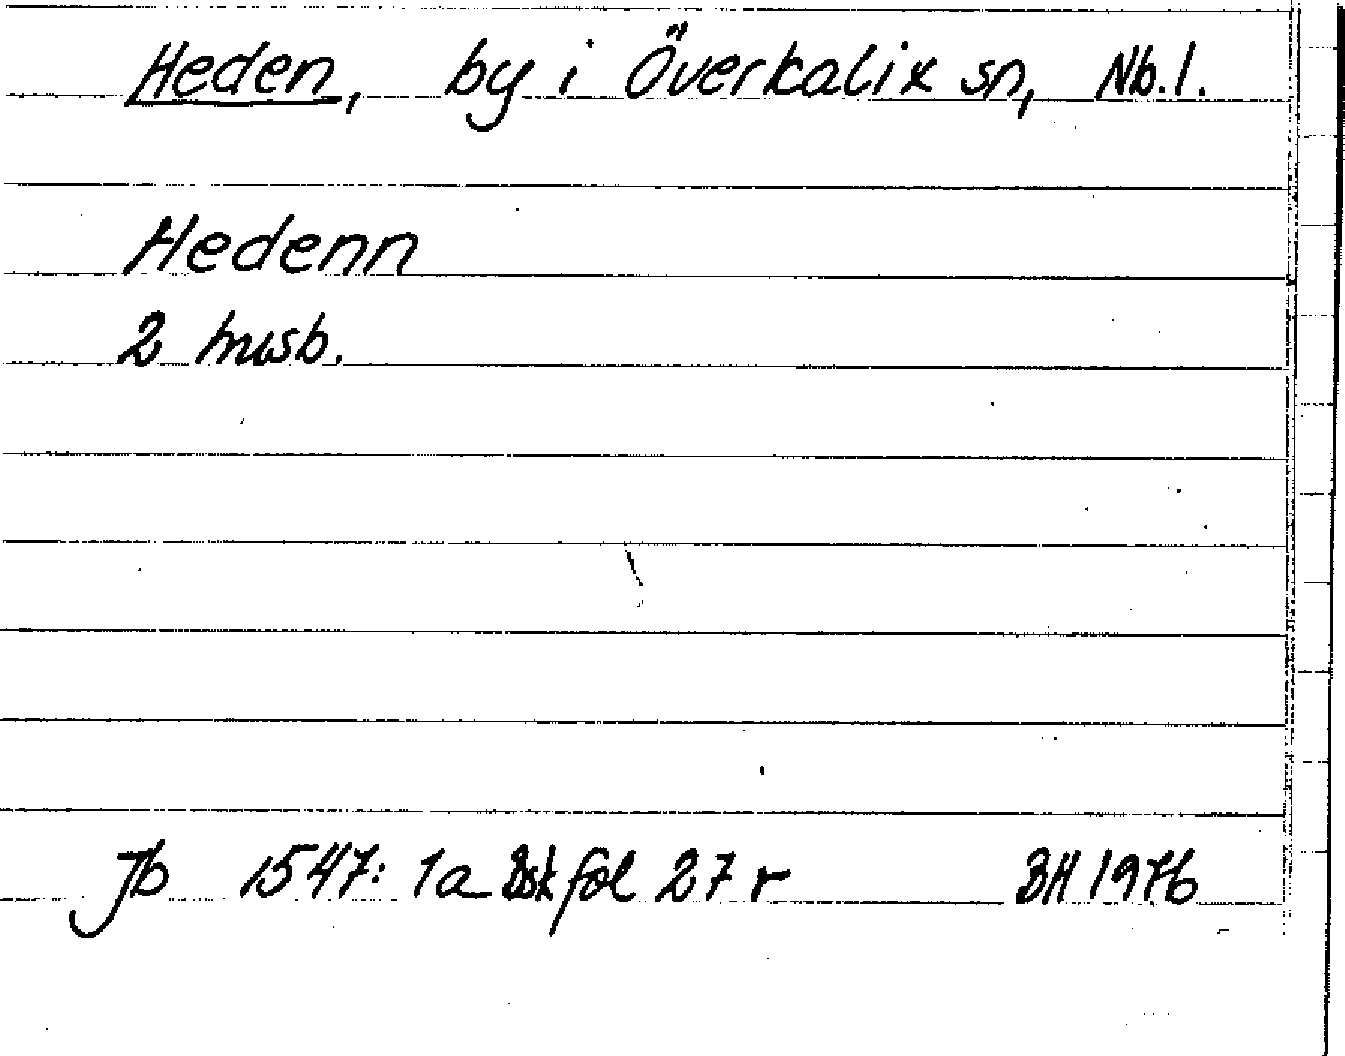 Heden, by i Överkalix sn, Nb.l.
Hedenn
2 husb.
Jb 1547: 1a fol 27 r BH 1976